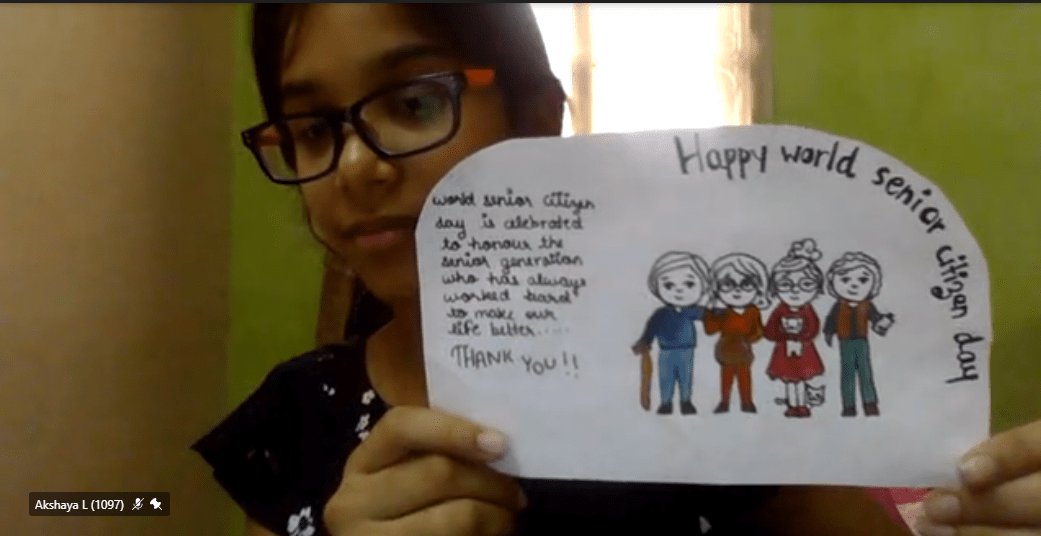 Happy world senior citizen day
world senior citizen
day is celebrated
to honour the
senior generation
who has always
worked hard
to make our
life better.....
THANK YOU!!
Akshaya L (1097)